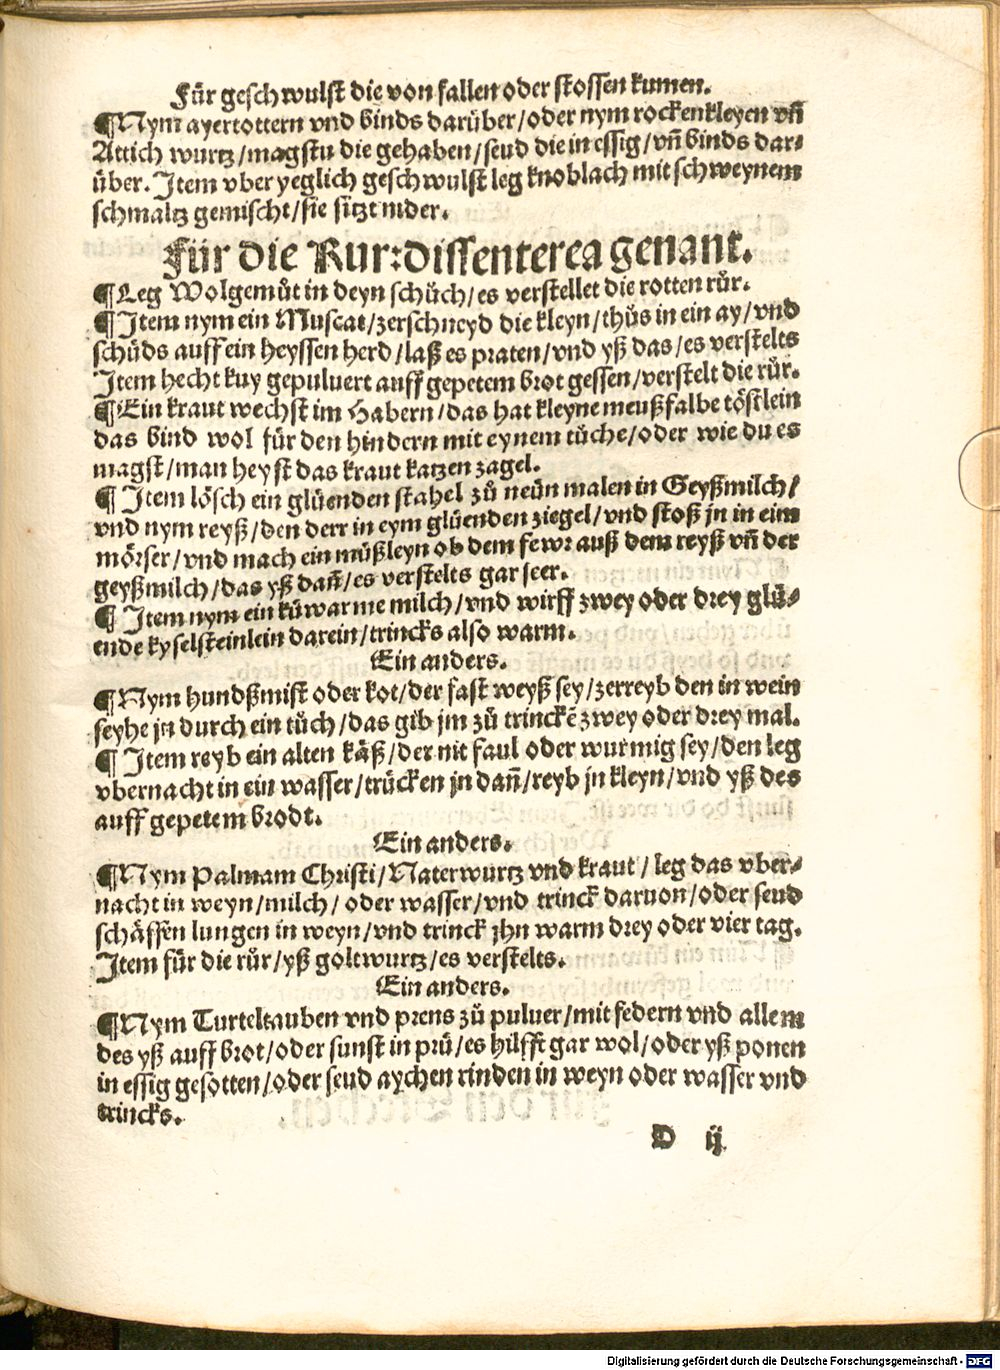 Für geschwulst die von fallen oder stossen kumen.
¶Nym ayertottern vnd binds darüber/oder nym rockenkleyen vñ
Attich wurtz/magstu die gehaben/seud die in essig/vñ binds dar⸗
über. Item vber yeglich geschwulst leg knoblach mit schweynem
schmaltz gemischt/sie sitzt nider.
Für die Rur:dissenterea genant.
¶Leg Wolgemůt in deyn schůch/es verstellet die rotten růr.
¶Item nym ein Muscat/zerschneyd die kleyn/thůs in ein ay/vnd
schüds auff ein heyssen herd/laß es praten/vnd yß das/es verstelts
Item hecht kuy gepuluert auff gepetem brot gessen/verstelt die růr.
¶Ein kraut wechst im Habern/das hat kleyne meußfalbe töstlein
das bind wol für den hindern mit eynem tůche/oder wie du es
magst/man heyst das kraut katzen zagel.
¶Item lösch ein glüenden stahel zů neün malen in Geyßmilch/
vnd nym reyß/den derr in eym glüenden ziegel/vnd stoß jn in eim
mörser/vnd mach ein můßleyn ob dem fewr auß dem reyß vñ der
geyßmilch/das yß dañ/es verstelts gar seer.
¶Item nym ein küwarme milch/vnd wirff zwey oder drey glü⸗
ende kyselsteinlein darein/trincks also warm.
Ein anders.
¶Nym hundßmist oder kot/der fast weyß sey/zerreyb den in wein
seyhe jn durch ein tůch/das gib jm zů trinckẽ zwey oder drey mal.
¶Item reyb ein alten käß/der nit faul oder wurmig sey/den leg
vbernacht in ein wasser/trücken jn dañ/reyb jn kleyn/vnd yß des
auff gepetem brodt.
Ein anders.
¶Nym Palmam Christi/Naterwurtz vnd kraut/leg das vber⸗
nacht in weyn/milch/oder wasser/vnd trinck daruon/oder seud
schäffen lungen in weyn/vnd trinck jhn warm drey oder vier tag.
Item für die růr/yß goltwurtz/es verstelts.
Ein anders.
¶Nym Turteltauben vnd prens zů puluer/mit federn vnd allem
des yß auff brot/oder sunst in prü/es hilfft gar wol/oder yß ponen
in essig gesotten/oder seud aychen rinden in weyn oder wasser vnd
trincks.
D ij
Digitalisierung gefördert durch die Deutsche Forschungsgemeinschaft - DFG